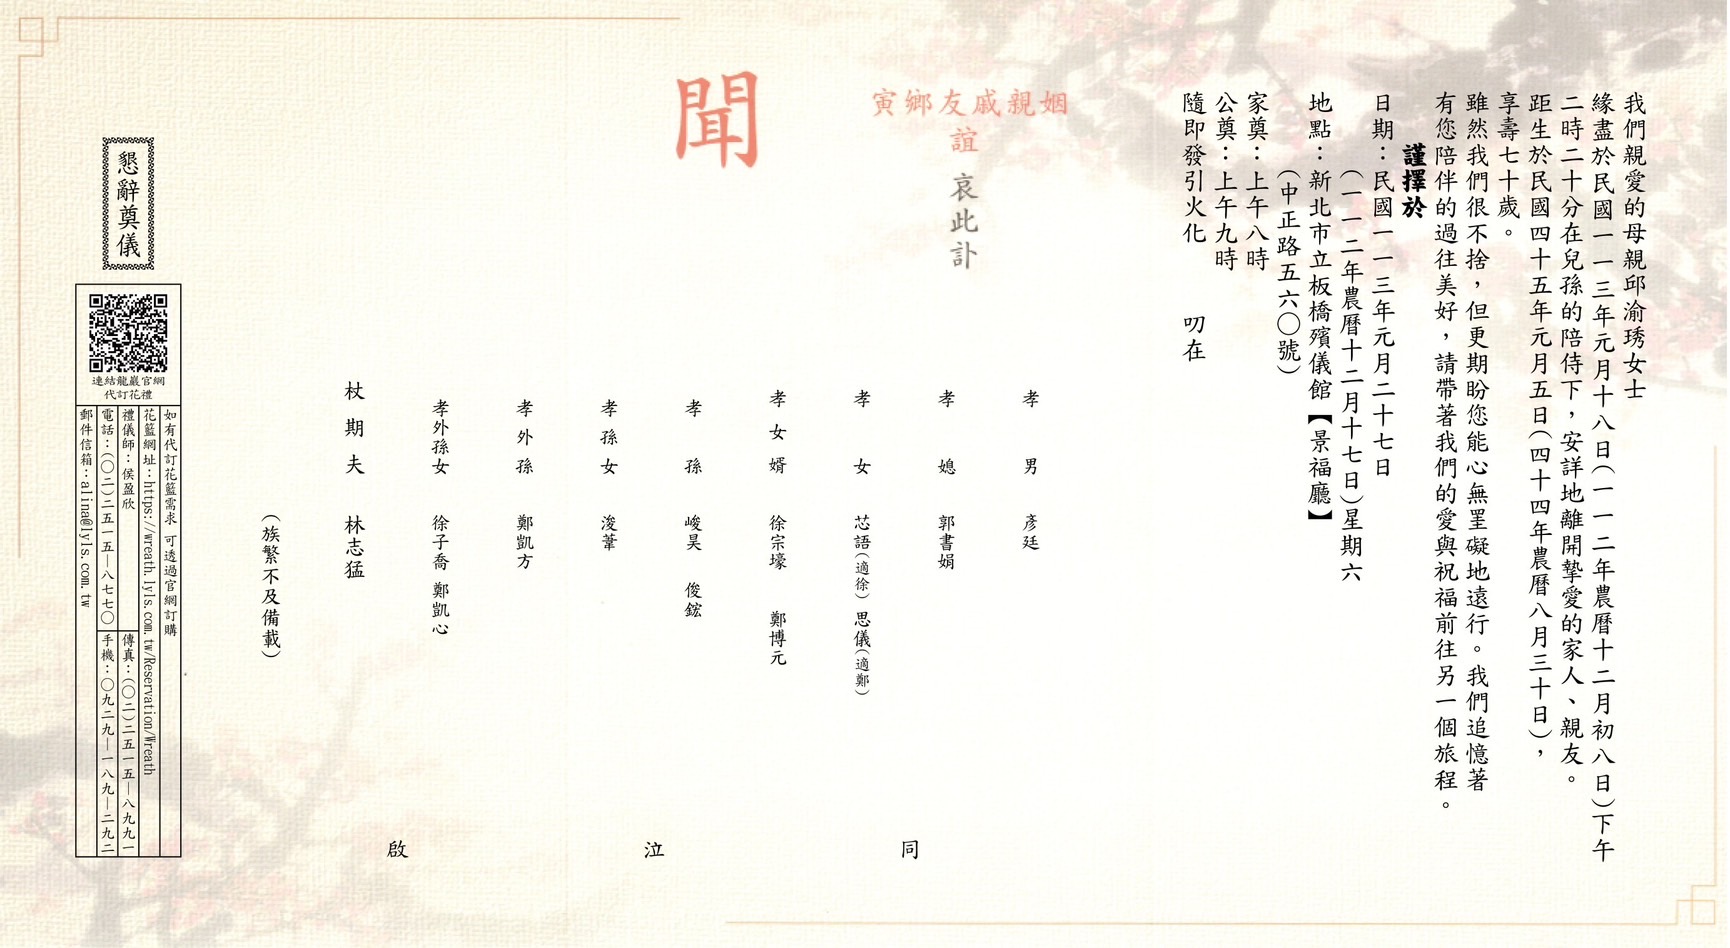 我們親愛的母親邱渝琇女士
緣盡於民國一一三年元月十八日(一一二年農曆十二月初八日)下午
二時二十分在兒孫的陪侍下，安詳地離開摯愛的家人、親友。
距生於民國四十五年元月五日(四十四年農曆八月三十日)，
享壽七十歲。
雖然我們很不捨，但更期盼您能心無罣礙地遠行。我們追憶著
有您陪伴的過往美好，請帶著我們的愛與祝福前往另一個旅程。
謹擇於
日期：民國一一三年元月二十七日
(一一二年農曆十二月十七日)星期六
地點：新北市立板橋殯儀館【景福廳】
(中正路五六〇號)
家奠：上午八時
公奠：上午九時
隨即發引火化 叨在
姻親戚友鄉寅
誼
哀此訃
聞
孝男 彥廷
孝媳 郭書娟
孝女 芯語(適徐) 思儀(適鄭)
孝女婿 徐宗壕 鄭博元
孝孫 峻昊 俊鋐
孝孫女 浚葦
孝外孫 鄭凱方
孝外孫女 徐子喬 鄭凱心
杖期夫 林志猛
(族繁不及備載)
同泣啟
懇辭奠儀
連結龍巖官網
代訂花禮
如有代訂花籃需求 可透過官網訂購
花籃網址：https://wreath.lyls.com.tw/Reservation/Wreath
禮儀師：侯盈欣
傳真：(〇二)二五一五—八九九一
電話：(〇二)二五一五—八七七〇
手機：〇九二九—一八九—二九二
郵件信箱：alina@lyls.com.tw